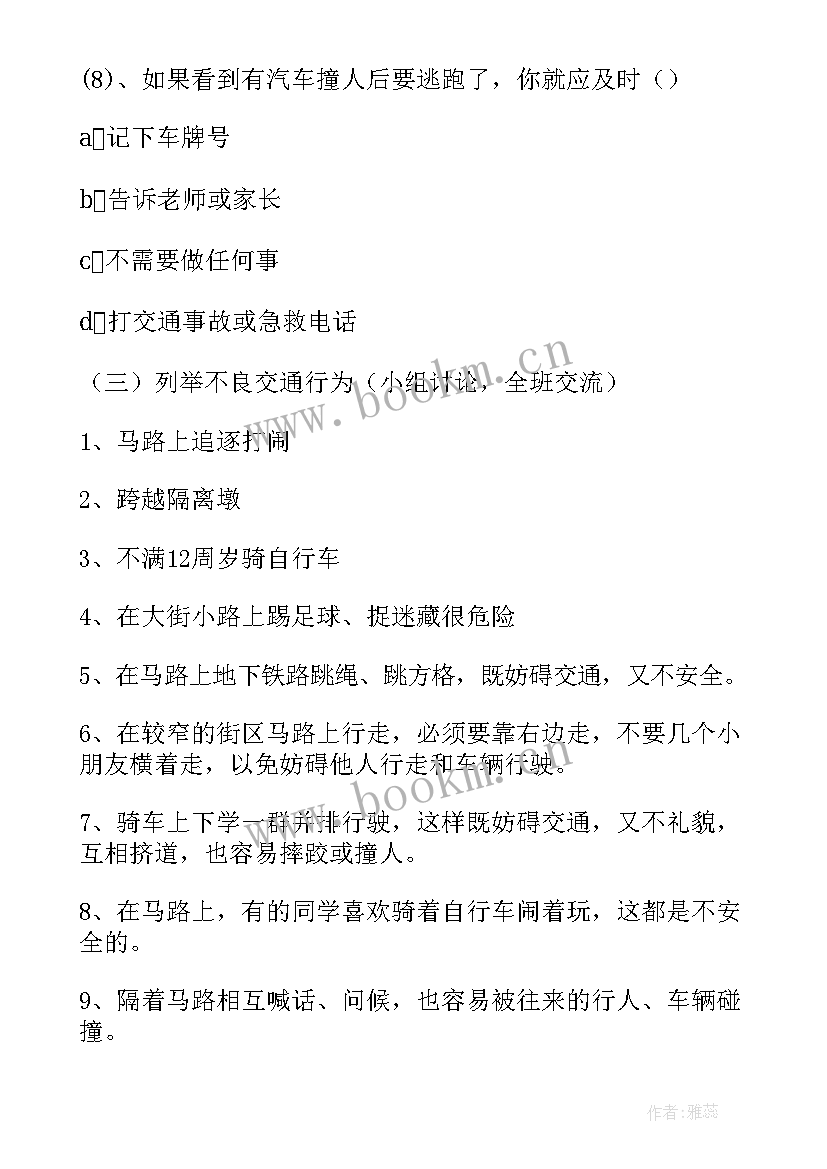 (8)、如果看到有汽车撞人后要逃跑了，你就应及时（）
a记下车牌号
b告诉老师或家长
c不需要做任何事
d打交通事故或急救电话
（三）列举不良交通行为（小组讨论，全班交流）
1、马路上追逐打闹
2、跨越隔离墩
3、不满12周岁骑自行车
4、在大街小路上踢足球、捉迷藏很危险
5、在马路上地下铁路跳绳、跳方格，既妨碍交通，又不安全。
6、在较窄的街区马路上行走，必须要靠右边走，不要几个小
朋友横着走，以免妨碍他人行走和车辆行驶。
7、骑车上下学一群并排行驶，这样既妨碍交通，又不礼貌，
互相挤道，也容易摔跤或撞人。
8、在马路上，有的同学喜欢骑着自行车闹着玩，这都是不安
全的。
9、隔着马路相互喊话、问候，也容易被往来的行人、车辆碰
撞。
www.bookm.cn
www.bookm.cn
作者:雅蕊